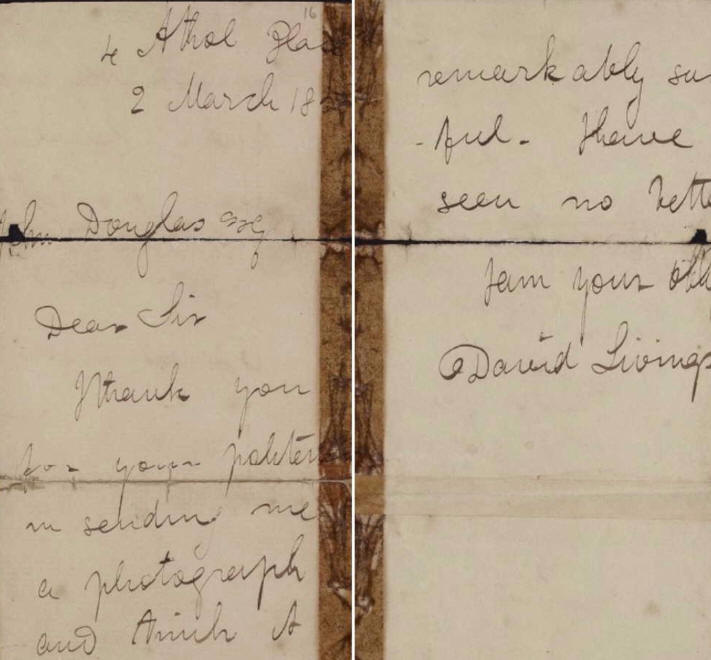 16
4 Athol Plac
2 March 18
John Douglas Esq
Dear Sir
I thank you
for your politen
in sending me
a photograph
and think it
remarkably su
-ful. I have
seen no bette
I am your
David Livings